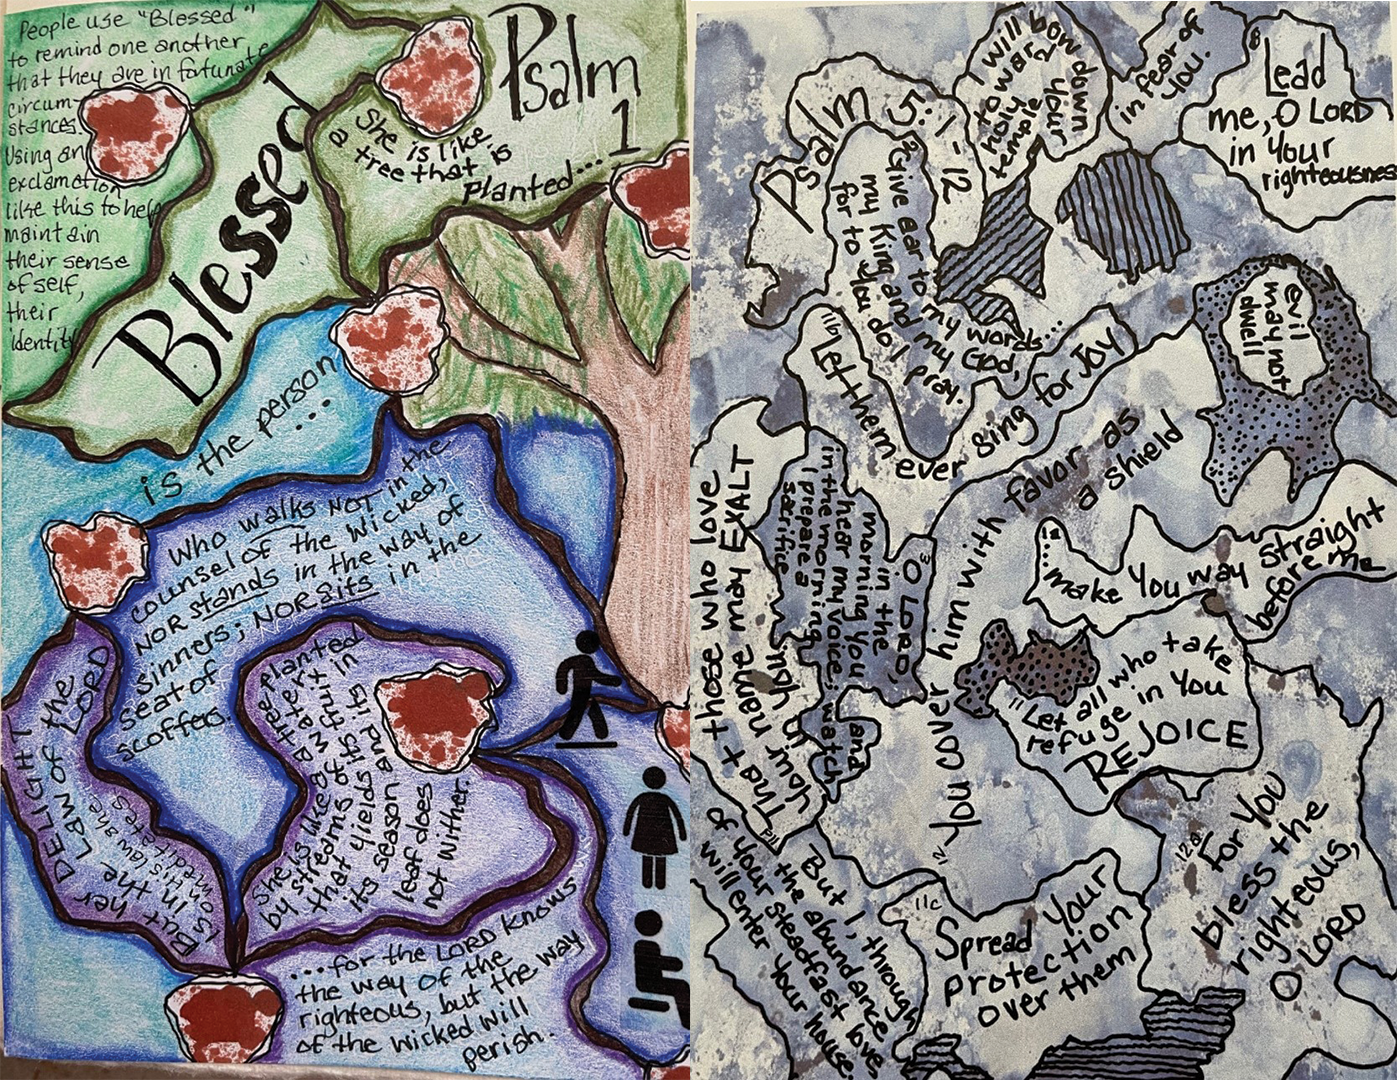 People use "Blessed"
to remind one another
that they are in fortunate
circum-
stances.
Using an
exclamation
like this to help
maintain
their sense
of self,
their
identity
Blessed
Psalm
1
She is like
a tree that is
planted...
is the person
...
who walks NOT in the
counsel of the wicked,
NOR stands in the way of
sinners; NOR sits in the
seat of
scoffers.
But her DELIGHT
is in the Law of the LORD
in his law she
meditates
She is like a tree planted
by streams of water
that yields its fruit in
its season and its
leaf does
not wither.
...for the LORD knows
the way of the
righteous, but the way
of the wicked will
perish.
Psalm 5:1-12
Give ear to my words...
my King and my God,
for to you do I pray.
I will bow down
toward your
holy
temple
in fear of
you.
8
Lead
me, O LORD
in your
righteousness
evil
may not
dwell
11b
Let them
ever sing for joy
3 O LORD,
in the
morning you
hear my voice;
in the morning
I prepare a
sacrifice
and
watch
you cover him with favor as
a shield
...make you way straight
before me
11 Let all who take
refuge in you
REJOICE
11d
That those who love
your name may EXALT
in you
But I, through
the abundance
of your steadfast love,
will enter your house.
11c
Spread your
protection
over them
12a
For you
bless the
righteous,
O LORD